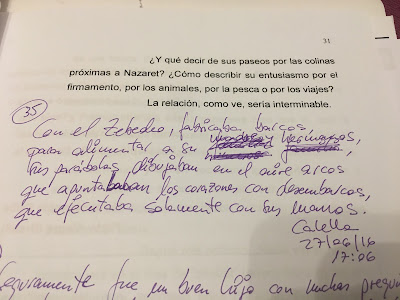 31
¿Y qué decir de sus paseos por las colinas
próximas a Nazaret? ¿Cómo describir su entusiasmo por el
firmamento, por los animales, por la pesca o por los viajes?
La relación, como ve, sería interminable.
35
Con el Zebedeo, fabricaba barcos
para alimentar a su madre y hermanos,
sus parábolas, dibujaban en el aire arcos
que apuntaban los corazones con desembarcos,
que ejecutaba solamente con sus manos.
Calella
27/06/16
17:06
Seguramente fue un buen hijo con muchas